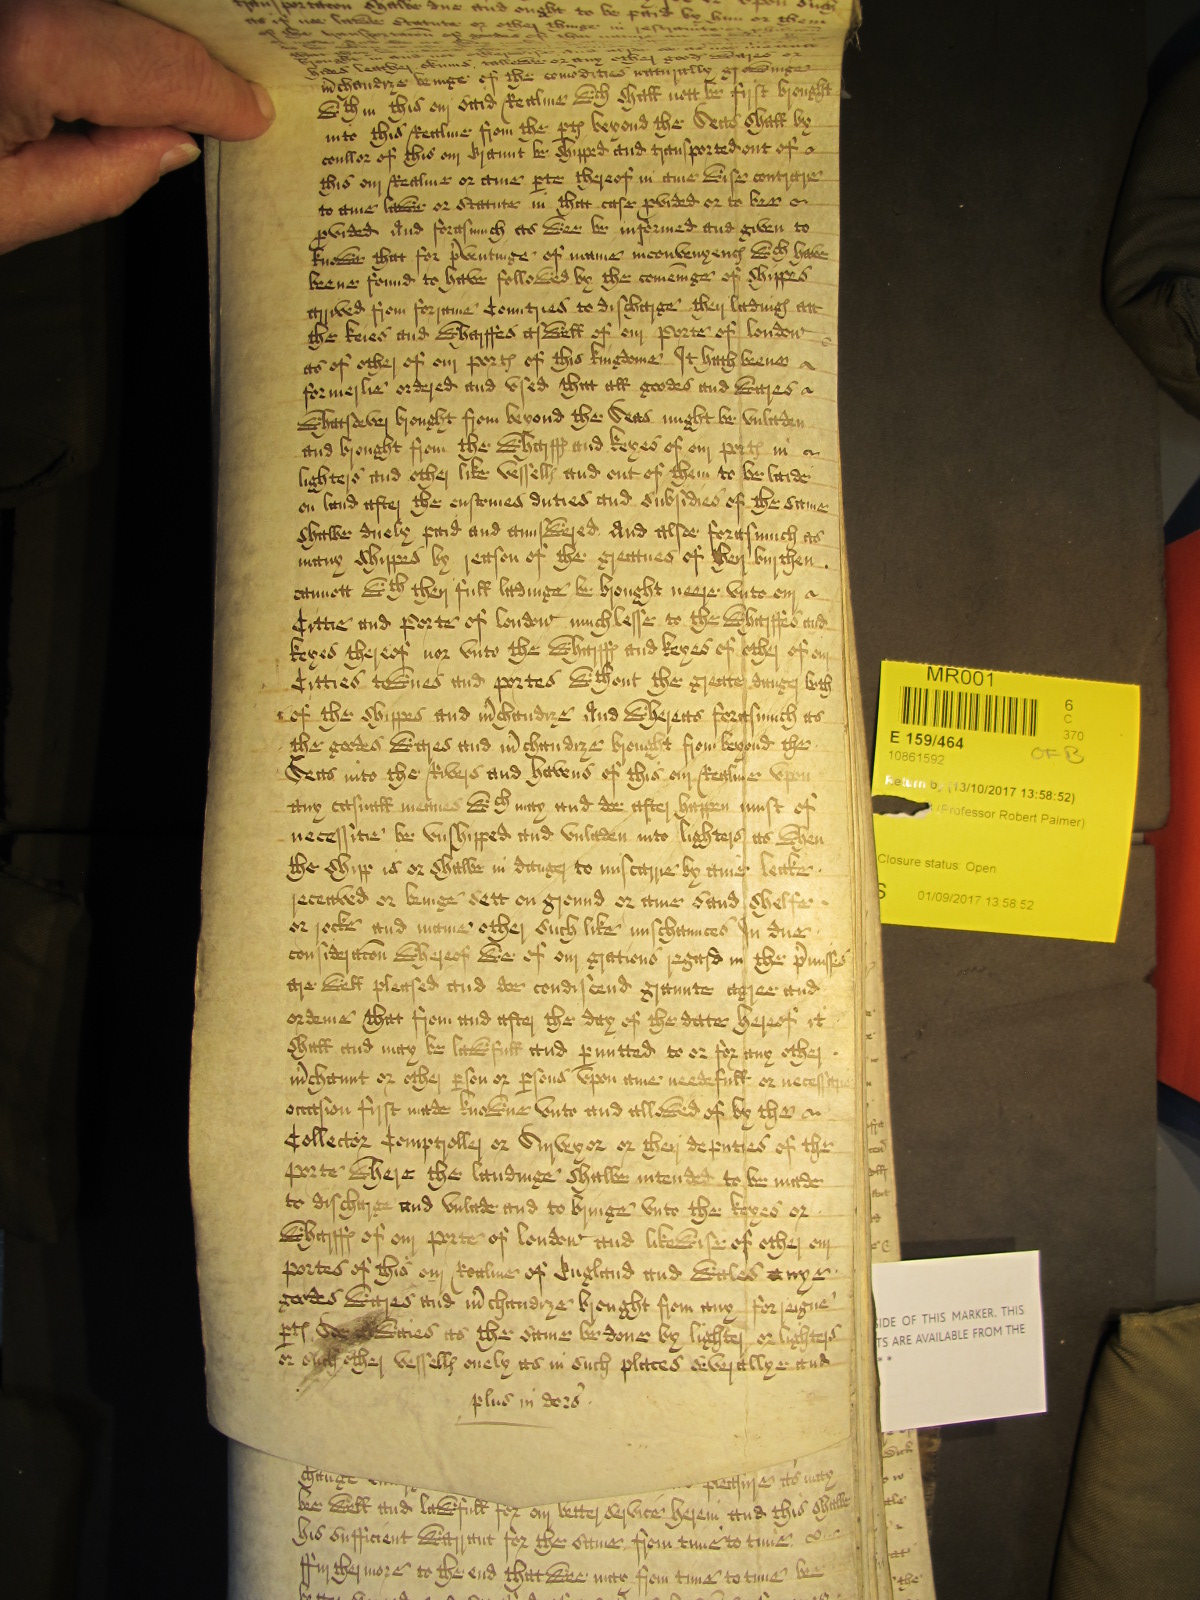 transportacon shalbe due and ought to be paid by him or them
as if noe lawe Statute or other thinge in restrainte
of the transportacon of goodes of that nature
brought in and
hides leather skinns, tallowe or any other goodes wares or
m̃chandize beinge of the comodities naturally growinge
wth in this our said Realme wch shall nott be first brought
into this Realme from the ptꝭ beyond the Seas shall by
coullor of this our graunt be shipped and transported out of
this our Realme or anie pte thereof in anie wise contrarie
to anie lawe or Statute in that case pvided or to bee
pvided And forasmuch as wee be informed and given to
knowe that for p̃ventinge of manie inconvenyencꝭ wch have
beene found to have followed by the comeinge of shippes
arrived from forraine Countries to discharge their ladingꝭ att
the keies and wharffes aswell of our Porte of london
as of other of our portꝭ of this kingdome It hath beene
formerlie ordered and used that all goodes and wares
whatsoever brought from beyond the Seas might be unladen
and brought from the wharffꝭ and keyes of our portꝭ in
lighters and other like vessellꝭ and out of them to be laide
on land after the customes duties and subsidies of the same
shalbe duely paid and aunswered. And alsoe forasmuch as
many shippes by reason of the greatnes of their burthen
cannott wth their full ladinge be brought neere unto our
Cittie and Porte of london much lesse to the wharffes and
keyes thereof nor unto the wharffꝭ and keyes of other of our
Citties townes and portes wthout the greate danger both
of the shippes and m̃chandize And whereas forasmuch as
the goodes wares and m̃chandize brought from beyond the
Seas into the Rivers and havens of this our Realme upon
any casuall meanes wch may and doe after happen must of
necessitie be unshipped and unladen into lighters as when
the shipp is or shalbe in danger to miscarrie by anie leake
receaved or beinge sett on ground or anie sand shelfe
or rocke and manie other such like mischances In due
consideracon whereof we of our gratious regard in the p̃misses
are well pleased and doe condiscend graunte agree and
ordeine that from and after the day of the date hereof it
shall and may be lawfull and pmitted to or for any other
m̃chaunt or other pson or psons upon anie needefull or necessarie
occasion first made knowne unto and allowed of by the
Collector Comptroller or Surveyor or their deputies of the
porte where the landinge shalbe intended to be made
to discharge and unlade and to bringe unto the keyes or
wharffꝭ of our porte of london and likewise of other our
portes of this our Realme of England and Wales anye
goodes wares and m̃chandize brought from any forreigne
ptꝭ Soe as the same be done by lighter or lighters
or such other vessellꝭ onely as in such places severallye and
plus in dors'
change pleasure as may
bee well and lawfull for our better service herein and this shalbe
his sufficient warrant for the same from time to time
ffurthermore to the end that wee may from time to time bee
MR001
6
C
370
E 159/464
OFB
10861592
Return by (13/10/2017 13:58:52)
(Professor Robert Palmer)
Closure status: Open
S
01/09/2017 13:58:52
SIDE OF THIS MARKER. THIS
TS ARE AVAILABLE FROM THE
**